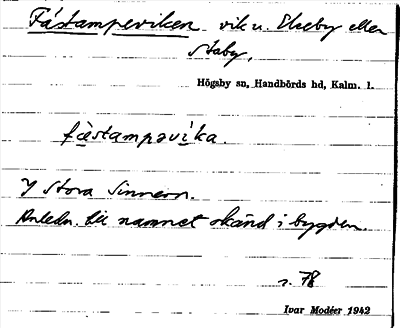 Fästampeviken vik v. Ekeby eller
Staby,
Högsby sn, Handbörds hd, Kalm. l.
fæstampəvika.
I Stora Sinnern.
Anledn. till namnet okänd i bygden.
s. 78
Ivar Modéer 1942